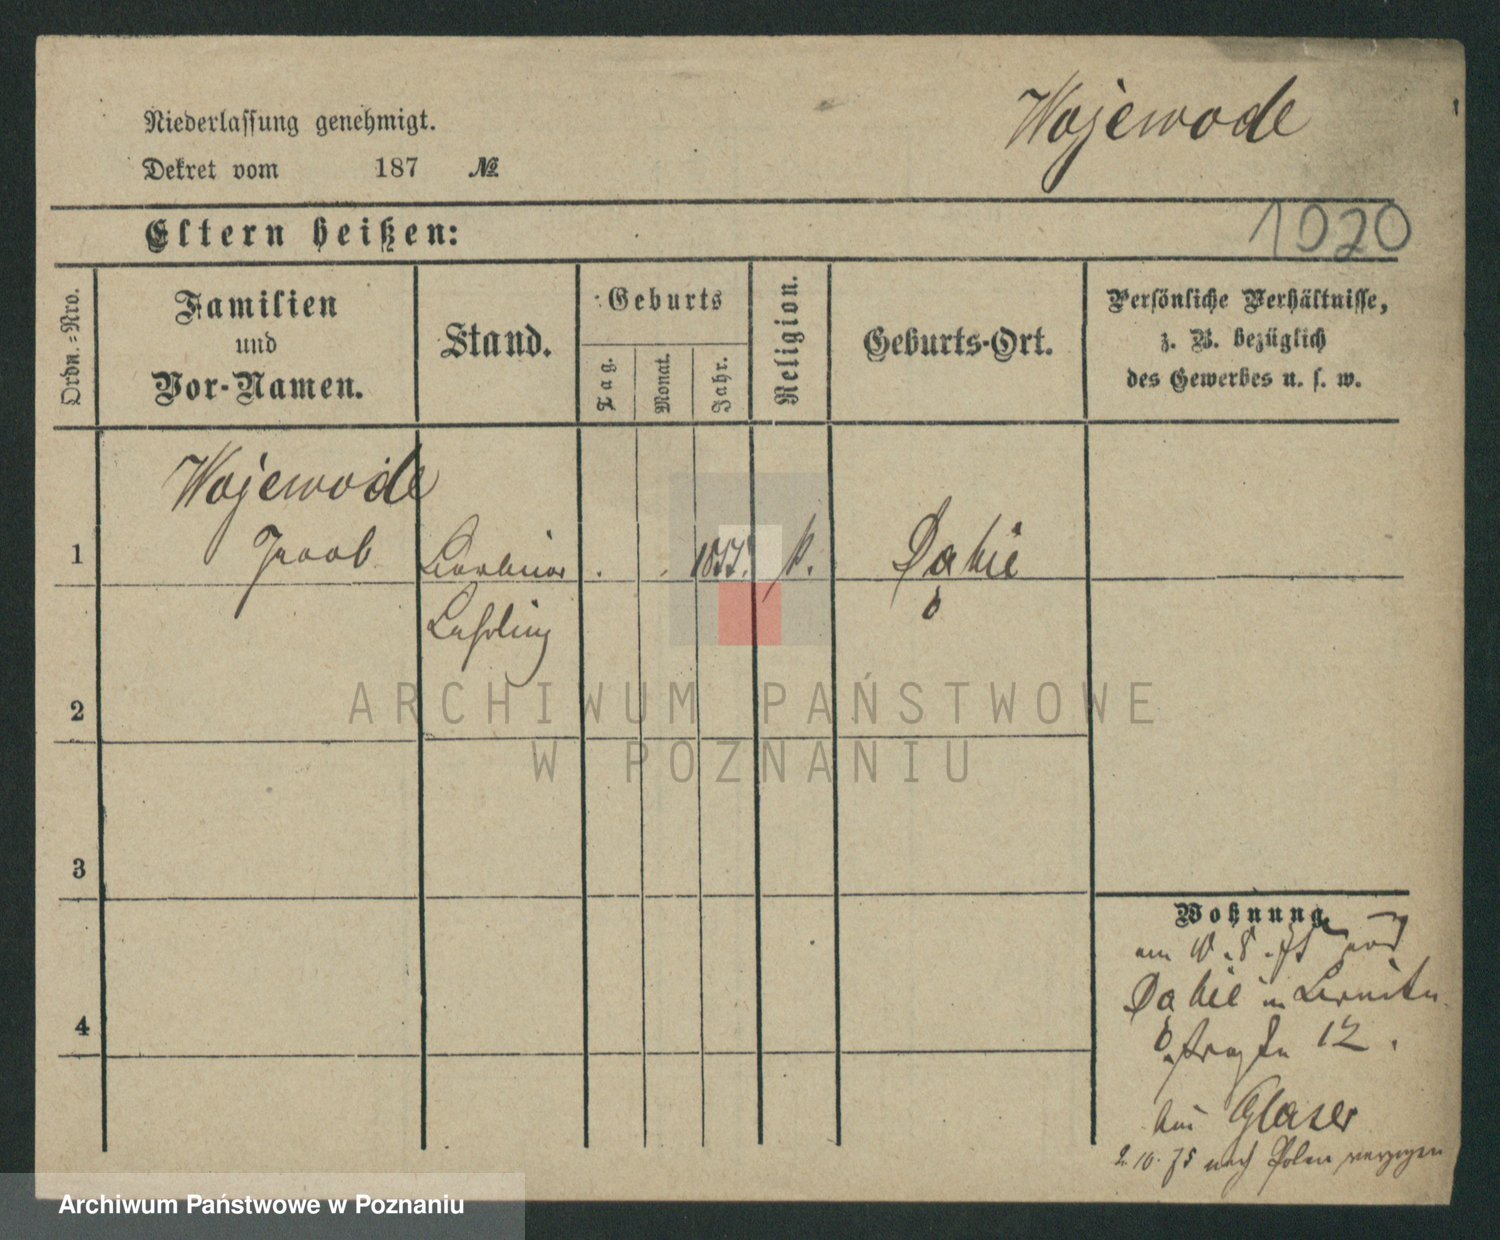 Wojewode
Niederlassung genehmigt.
Dekret vom 187 №
1020
Eltern heißen:
Ordn.=Nro.
Familien
und
Vor-Namen.
Stand.
Geburts
Tag.
Monat.
Jahr.
Religion.
Geburts-Ort.
Persönliche Verhältnisse,
z. B. bezüglich
des Gewerbes u. s. w.
Wojewode
1 Jacob Barbier 1855. k. Dąbie
Lehrling
2
ARCHIWUM PAŃSTWOWE
W POZNANIU
3
Wohnung
am 10.8.75 von
4
Dąbie in
straße 12.
bei Glaser
2.10.75 nach Polen verzogen
Archiwum Państwowe w Poznaniu